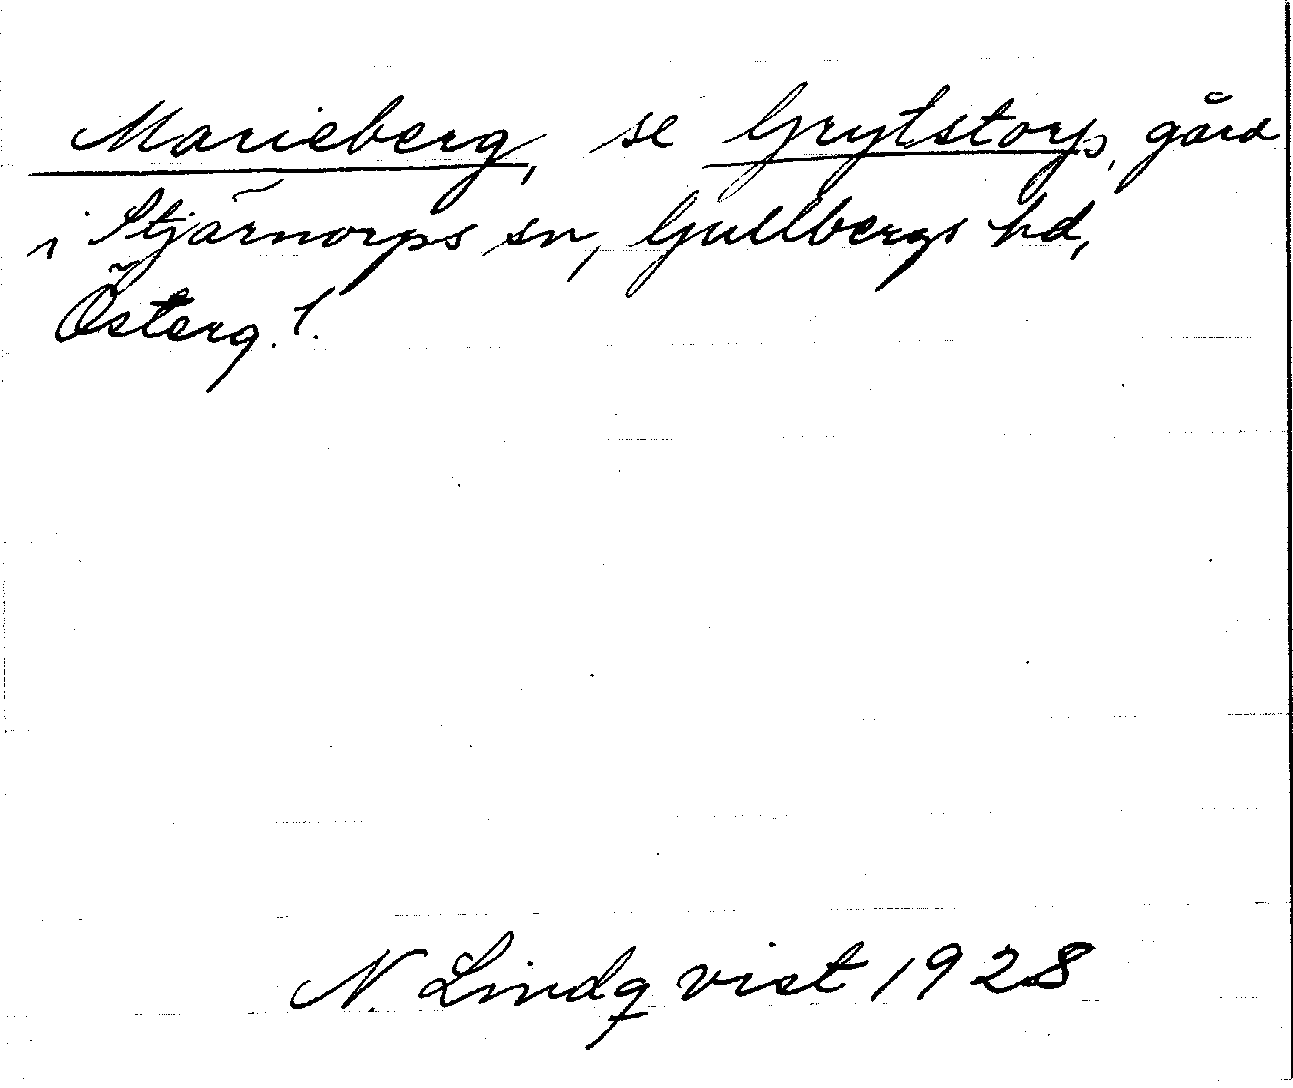 Marieberg, se Grytstorp, gård
i Stjärnorps sn, Gullbergs hd,
Österg. l.
N. Lindqvist 1928